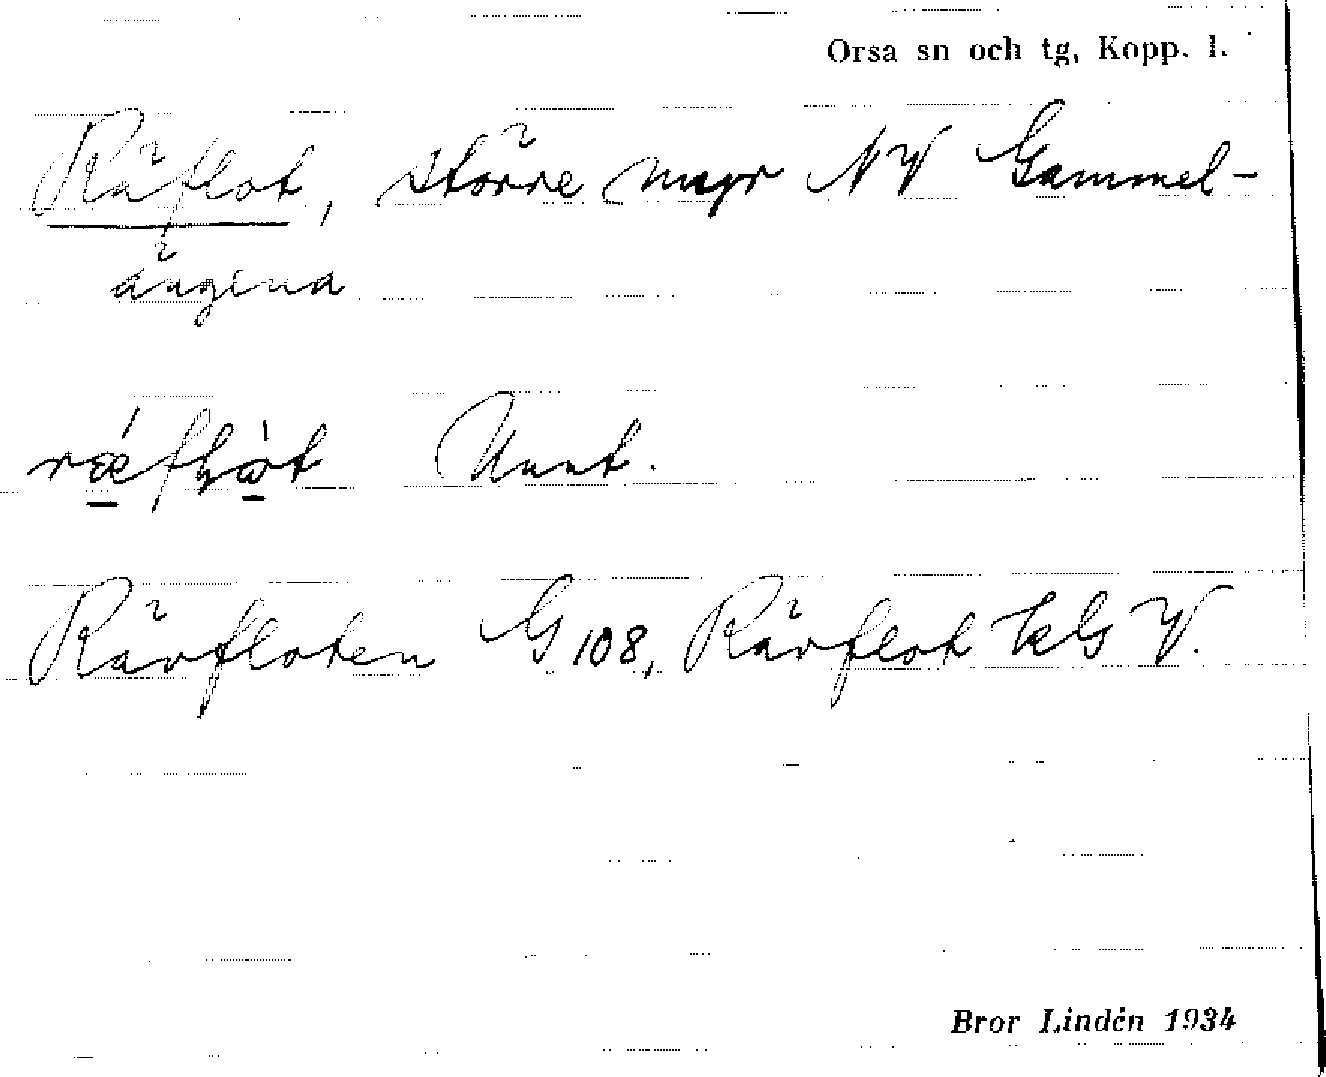 Orsa sn och tg, Kopp. l.
Räflot, större myr NV Gammel-
ängena
Unnt.
Rävfloten G 108, Rävflot kG V.
Bror Lindén 1934